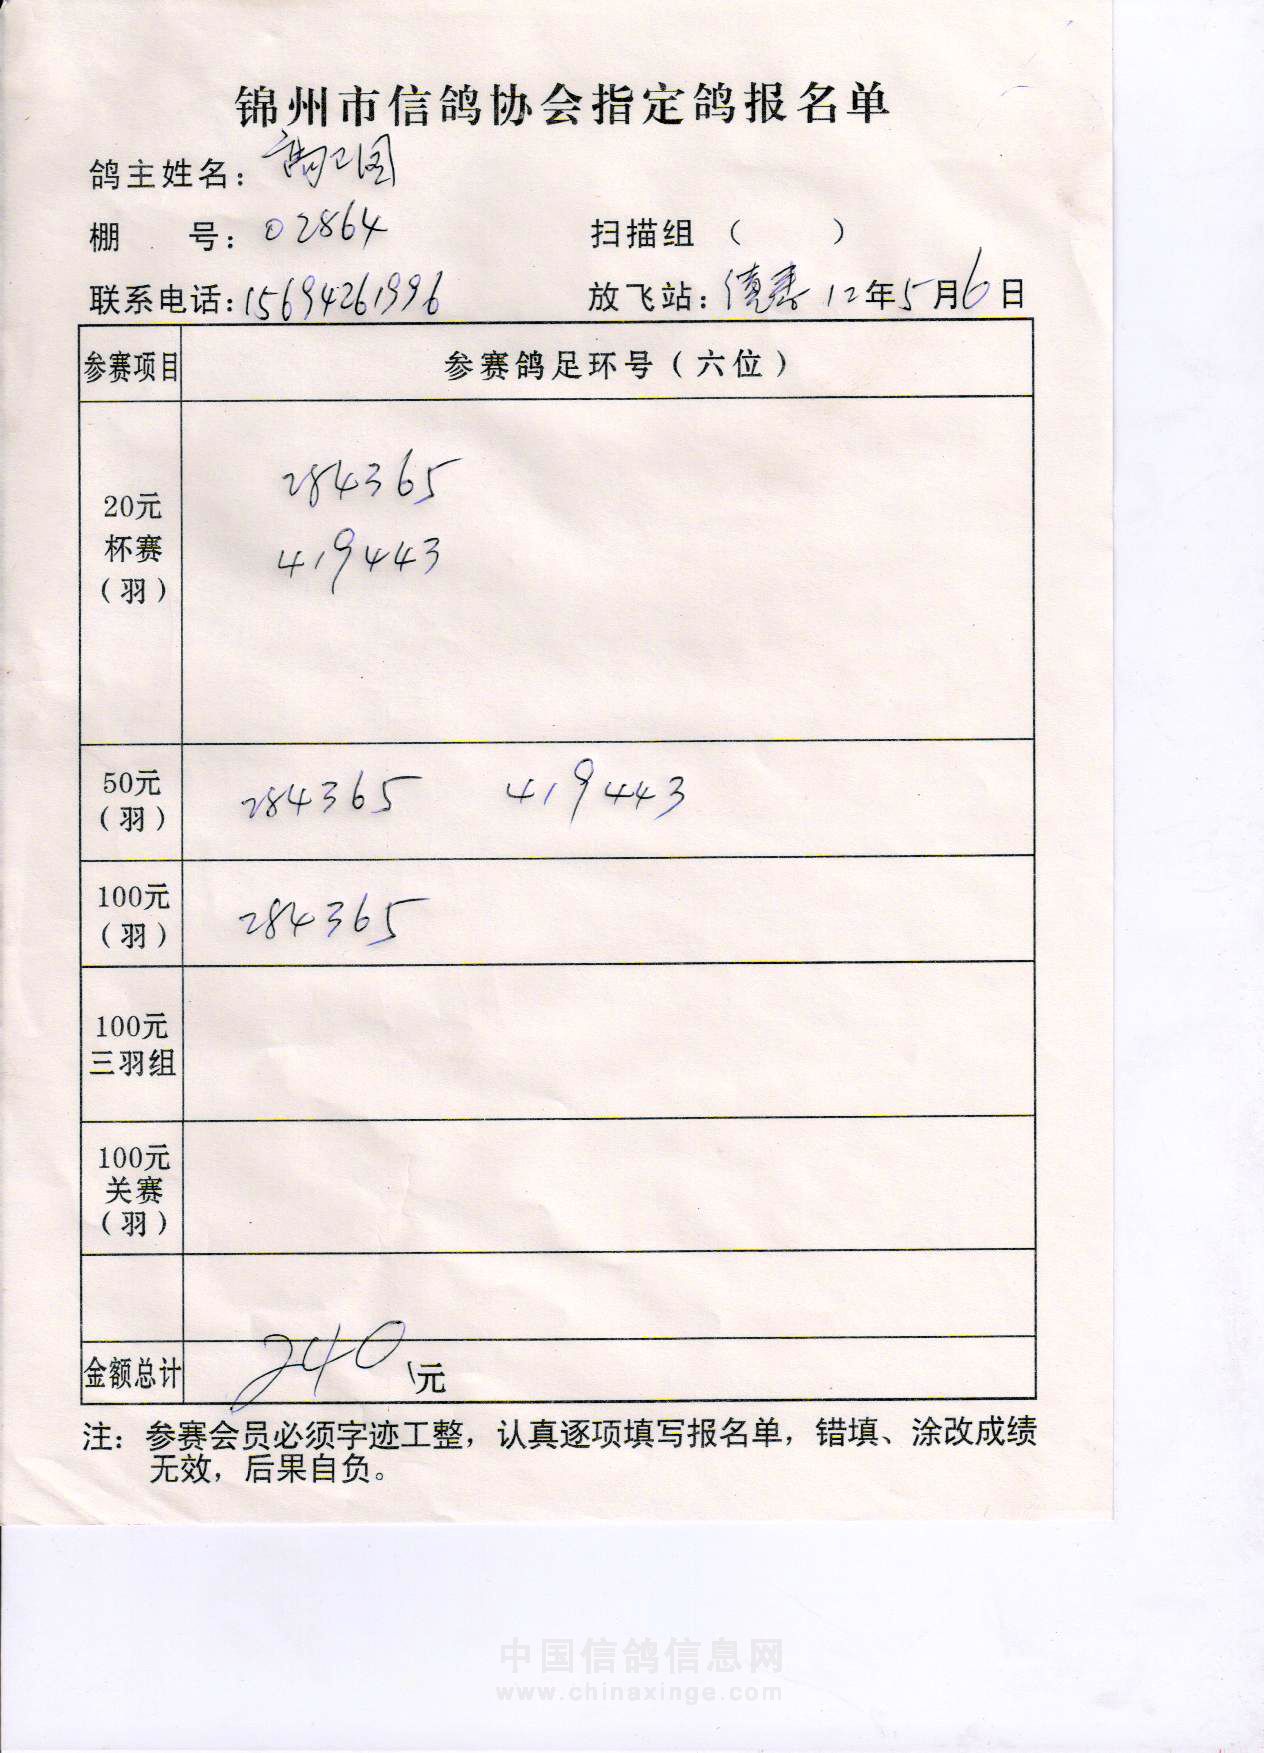 锦州市信鸽协会指定鸽报名单
鸽主姓名：高卫国
棚 号：02864 扫描组（ ）
联系电话：15694261996 放飞站： 12年5月6日
参赛项目 参赛鸽足环号（六位）
20元
杯赛
（羽）
284365
419443
50元
（羽）
284365 419443
100元
（羽）
284365
100元
三羽组
100元
关赛
（羽）
金额总计 240元
注：参赛会员必须字迹工整，认真逐项填写报名单，错填、涂改成绩
无效，后果自负。
中国信鸽信息网
www.chinaxinge.com